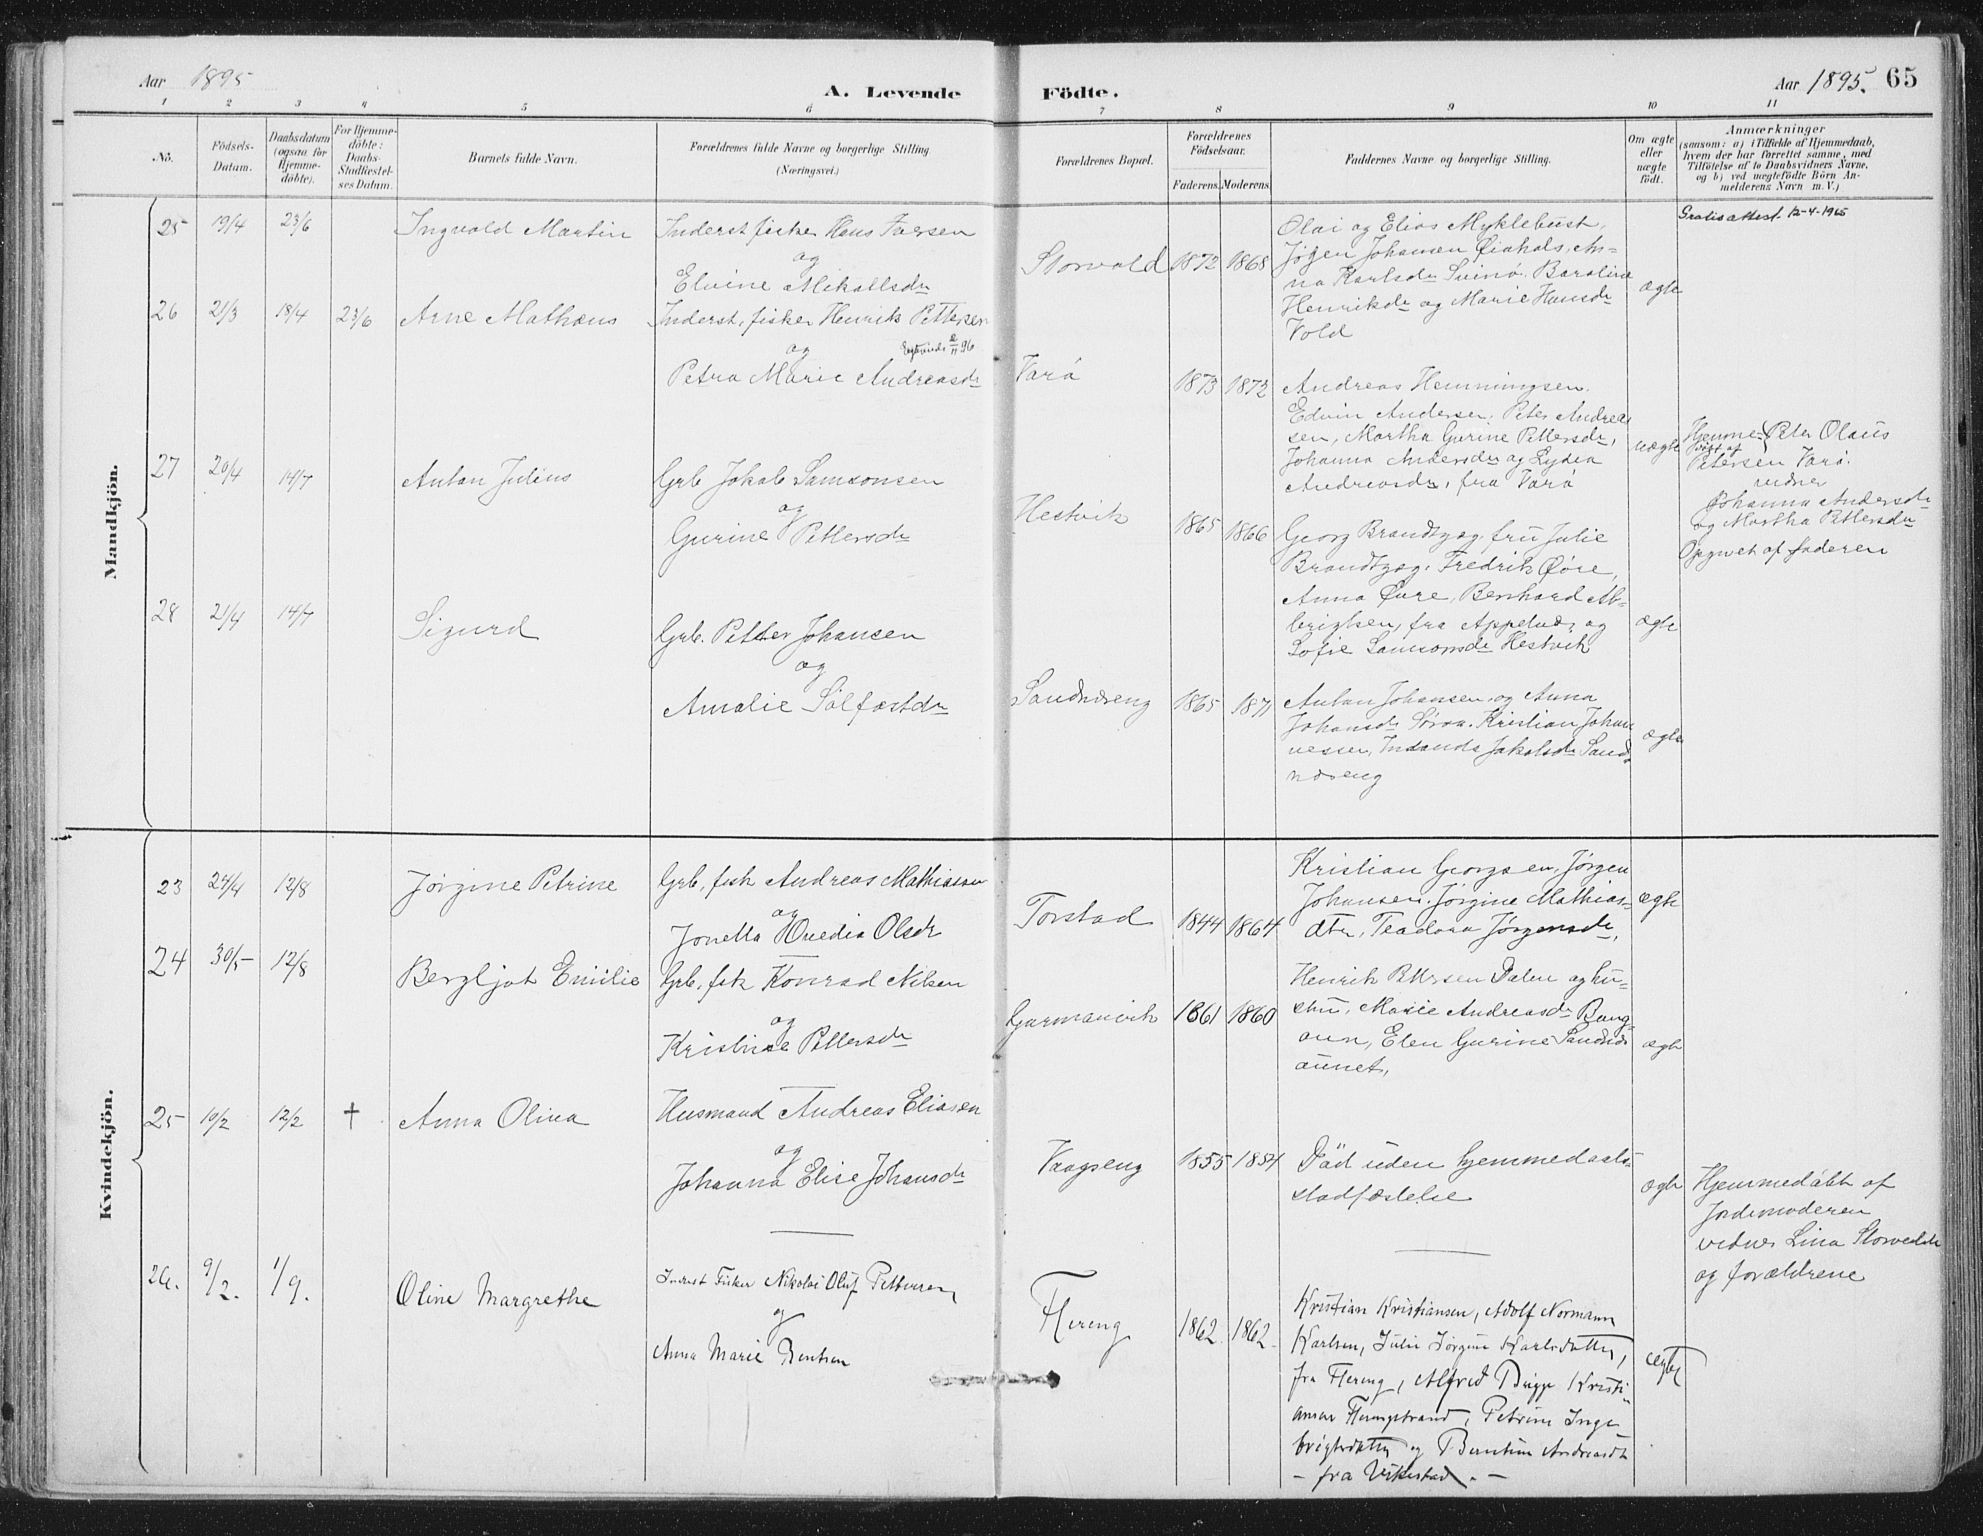 Aar 1895
A. Levende
Födte.
Aar 1895. 65
1 2 3 4 5 6 7 8 9 10 11
No.
Födsels-
Datum.
Daabsdatum
(ogsaa for
Hjemme-
döbte).
For Hjemme-
döbte:
Daabs-
Stadfæstel-
ses Datum.
Barnets fulde Navn.
Forældrenes fulde Navne og borgerlige Stilling
(Næringsvei.)
Forældrenes Bopæl.
Forældrenes
Födselsaar.
Faderens. Moderens.
Faddernes Navne og borgerlige Stilling.
Om ægte
eller
uægte
födt.
Anmærkninger
(saasom: a) i Tilfælde af Hjemmedaab,
hvem der har forrettet samme, med
Tilföielse af to Daabsvidners Navne,
og b) ved uægtefödte Börn An-
melderens Navn m. V.)
Mandkjön.
25 19/4 23/6 Ingvald Martin
Inderst fisker Hans
og
Elvine Mikallsdr
Storvold 1872 1868
Olai og Elias Myklebust,
Jögen Johansen
na Karlsdr Svinö. Baroline
Henriksdr og Marie Hansdr
Vold
ægte
Gratisattest 12-4-1965
26 21/3 18/4 23/6 Arne Mathæus
Inderst, fisker Henrik Pettersen
og
Petra Marie Andreasdr
Varö 1873 1872
Andreas Hemmingsen.
Edvin Andersen, Peter Andrea
sen, Martha Gurine Pettersdr,
Johanna Andersdr og Lydia
Andreasdr, fra Varö
uægte
Hjemme- Peter Olaus
döbt af
Petersen Varö.
vidner
Johanna Andersdr
og Martha Pettersdr
Opgivet af faderen
27 20/4 14/7 Anton Julius
Grb Jakob Samsonsen
og
Gurine Pettersdr
Hestvik 1865 1866
Georg Brandtzæg, fru Julie
Brandtzæg. Fredrik Öøre,
Anna Övre, Bernhard Al-
brigtsen, fra Appelvær og
Sofie Samsonsdr Hestvik
ægte
28 21/4 14/7 Sigurd
Grb. Petter Johansen
og
Amalie Sölfæstdr
Sandnæseng 1865 1871
Anton Johansen og Anna
Johansdr Söraa. Kristian Johan
nessen, Indianda Jakobsdr Sand
næseng
ægte
Kvindekjön.
23 24/4 12/8 Jörgine Petrine
Grb, fisk Andreas Mathiassen
og
Jonetta Ovedia Olsdr
Torstad 1844 1864
Kristian Georgsen, Jörgen
Johansen. Jörgine Mathias-
dtr, Teadora Jörgensdr,
ægte
24 30/5 12/8 Bergljot Emilie
Grb, fisk Konrad Nilsen
og
Kristine Pettersdr
Garmanvik 1861 1860
Henrik Pettersen Dalen og hu-
stru, Marie Andreasdr Bang-
aun, Elen Gurine Sandnæs
aunet,
ægte
25 10/2 12/2 † Anna Olina
Husmand Andreas Eliasen
og
Johanna Elise Johansdr
Vaagseng 1855 1854
Död uden hjemmedaabs-
stadfæstelse
ægte
Hjemmedöbt af
Jordemoderen
vidner Lina
og forældrene
26. 9/2. 1/9. Oline Margrethe
Inderst Fisker Nikolai Oluf Pettersen
og
Anna Marie Bentsen
Flereng 1862 1862
Kristian Kristiansen, Adolf Normann
Karlsen, Julie Jörgine Karlsdatter,
fra Flereng, Alfred Brigge Kristi-
ansen Flerengstrand, Petrine Inge-
brigtsdatter og Berntine Andreasdt
- fra Vikestad. -
ægte